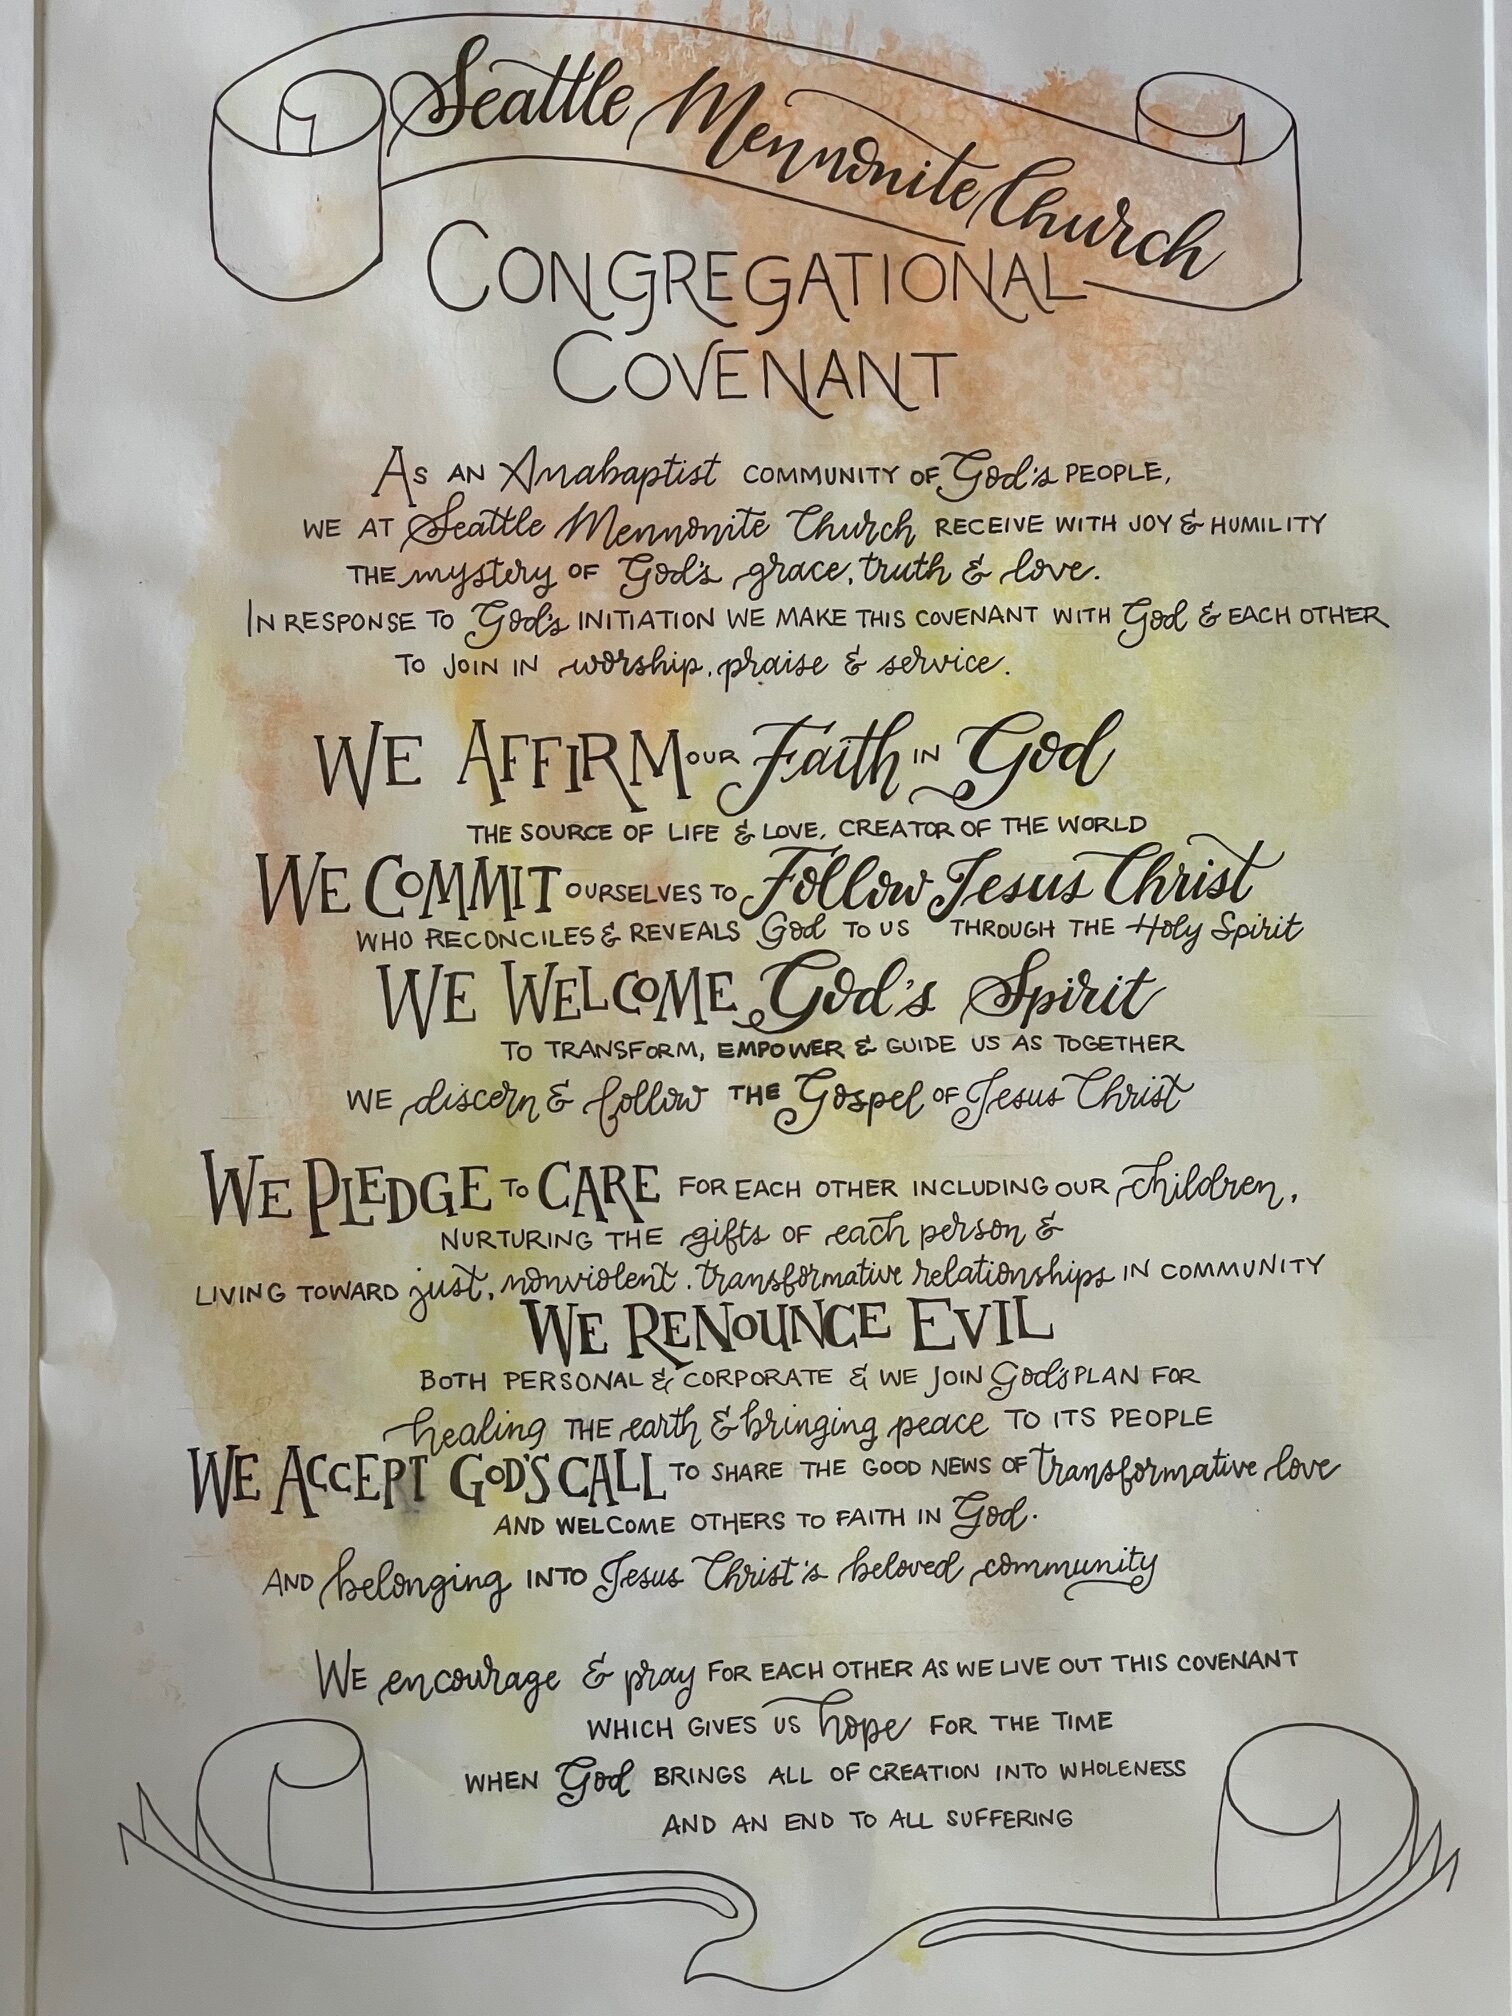 Seattle Mennonite Church
CONGREGATIONAL
COVENANT
AS AN Anabaptist COMMUNITY OF God's PEOPLE,
WE AT Seattle Mennonite Church RECEIVE WITH JOY & HUMILITY
THE mystery OF God's grace, truth & love.
IN RESPONSE TO God's INITIATION WE MAKE THIS COVENANT WITH God & EACH OTHER
TO JOIN IN worship, praise & service.
WE AFFIRM OUR Faith IN God
THE SOURCE OF LIFE & LOVE, CREATOR OF THE WORLD
WE COMMIT OURSELVES TO Follow Jesus Christ
WHO RECONCILES & REVEALS God TO US THROUGH THE Holy Spirit
WE WELCOME God's Spirit
TO TRANSFORM, EMPOWER & GUIDE US AS TOGETHER
WE discern & follow THE Gospel OF Jesus Christ
WE PLEDGE TO CARE FOR EACH OTHER INCLUDING OUR children,
NURTURING THE gifts OF each person &
LIVING TOWARD just, nonviolent, transformative relationships IN COMMUNITY
WE RENOUNCE EVIL
BOTH PERSONAL & CORPORATE & WE JOIN God's PLAN FOR
healing THE earth & bringing peace TO ITS PEOPLE
WE ACCEPT GOD'S CALL TO SHARE THE GOOD NEWS OF transformative love
AND WELCOME OTHERS TO FAITH IN God.
AND belonging INTO Jesus Christ's beloved community
WE encourage & pray FOR EACH OTHER AS WE LIVE OUT THIS COVENANT
WHICH GIVES US hope FOR THE TIME
WHEN God BRINGS ALL OF CREATION INTO WHOLENESS
AND AN END TO ALL SUFFERING